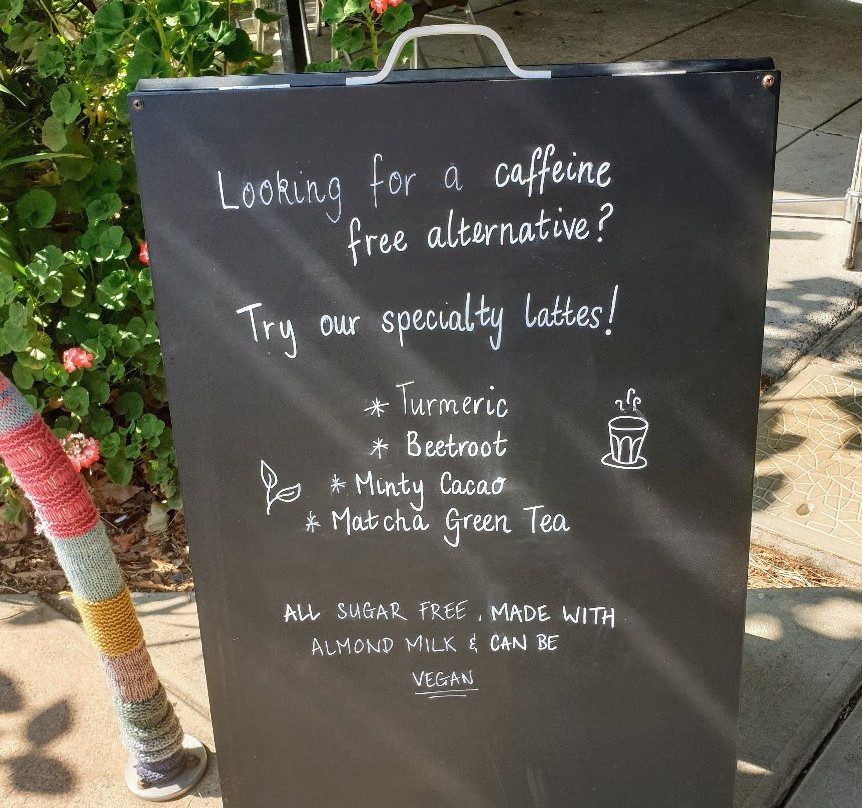 Looking for a caffeine
free alternative?
Try our specialty lattes!
* Turmeric
* Beetroot
* Minty Cacao
* Matcha Green Tea
ALL SUGAR FREE, MADE WITH
ALMOND MILK & CAN BE
VEGAN